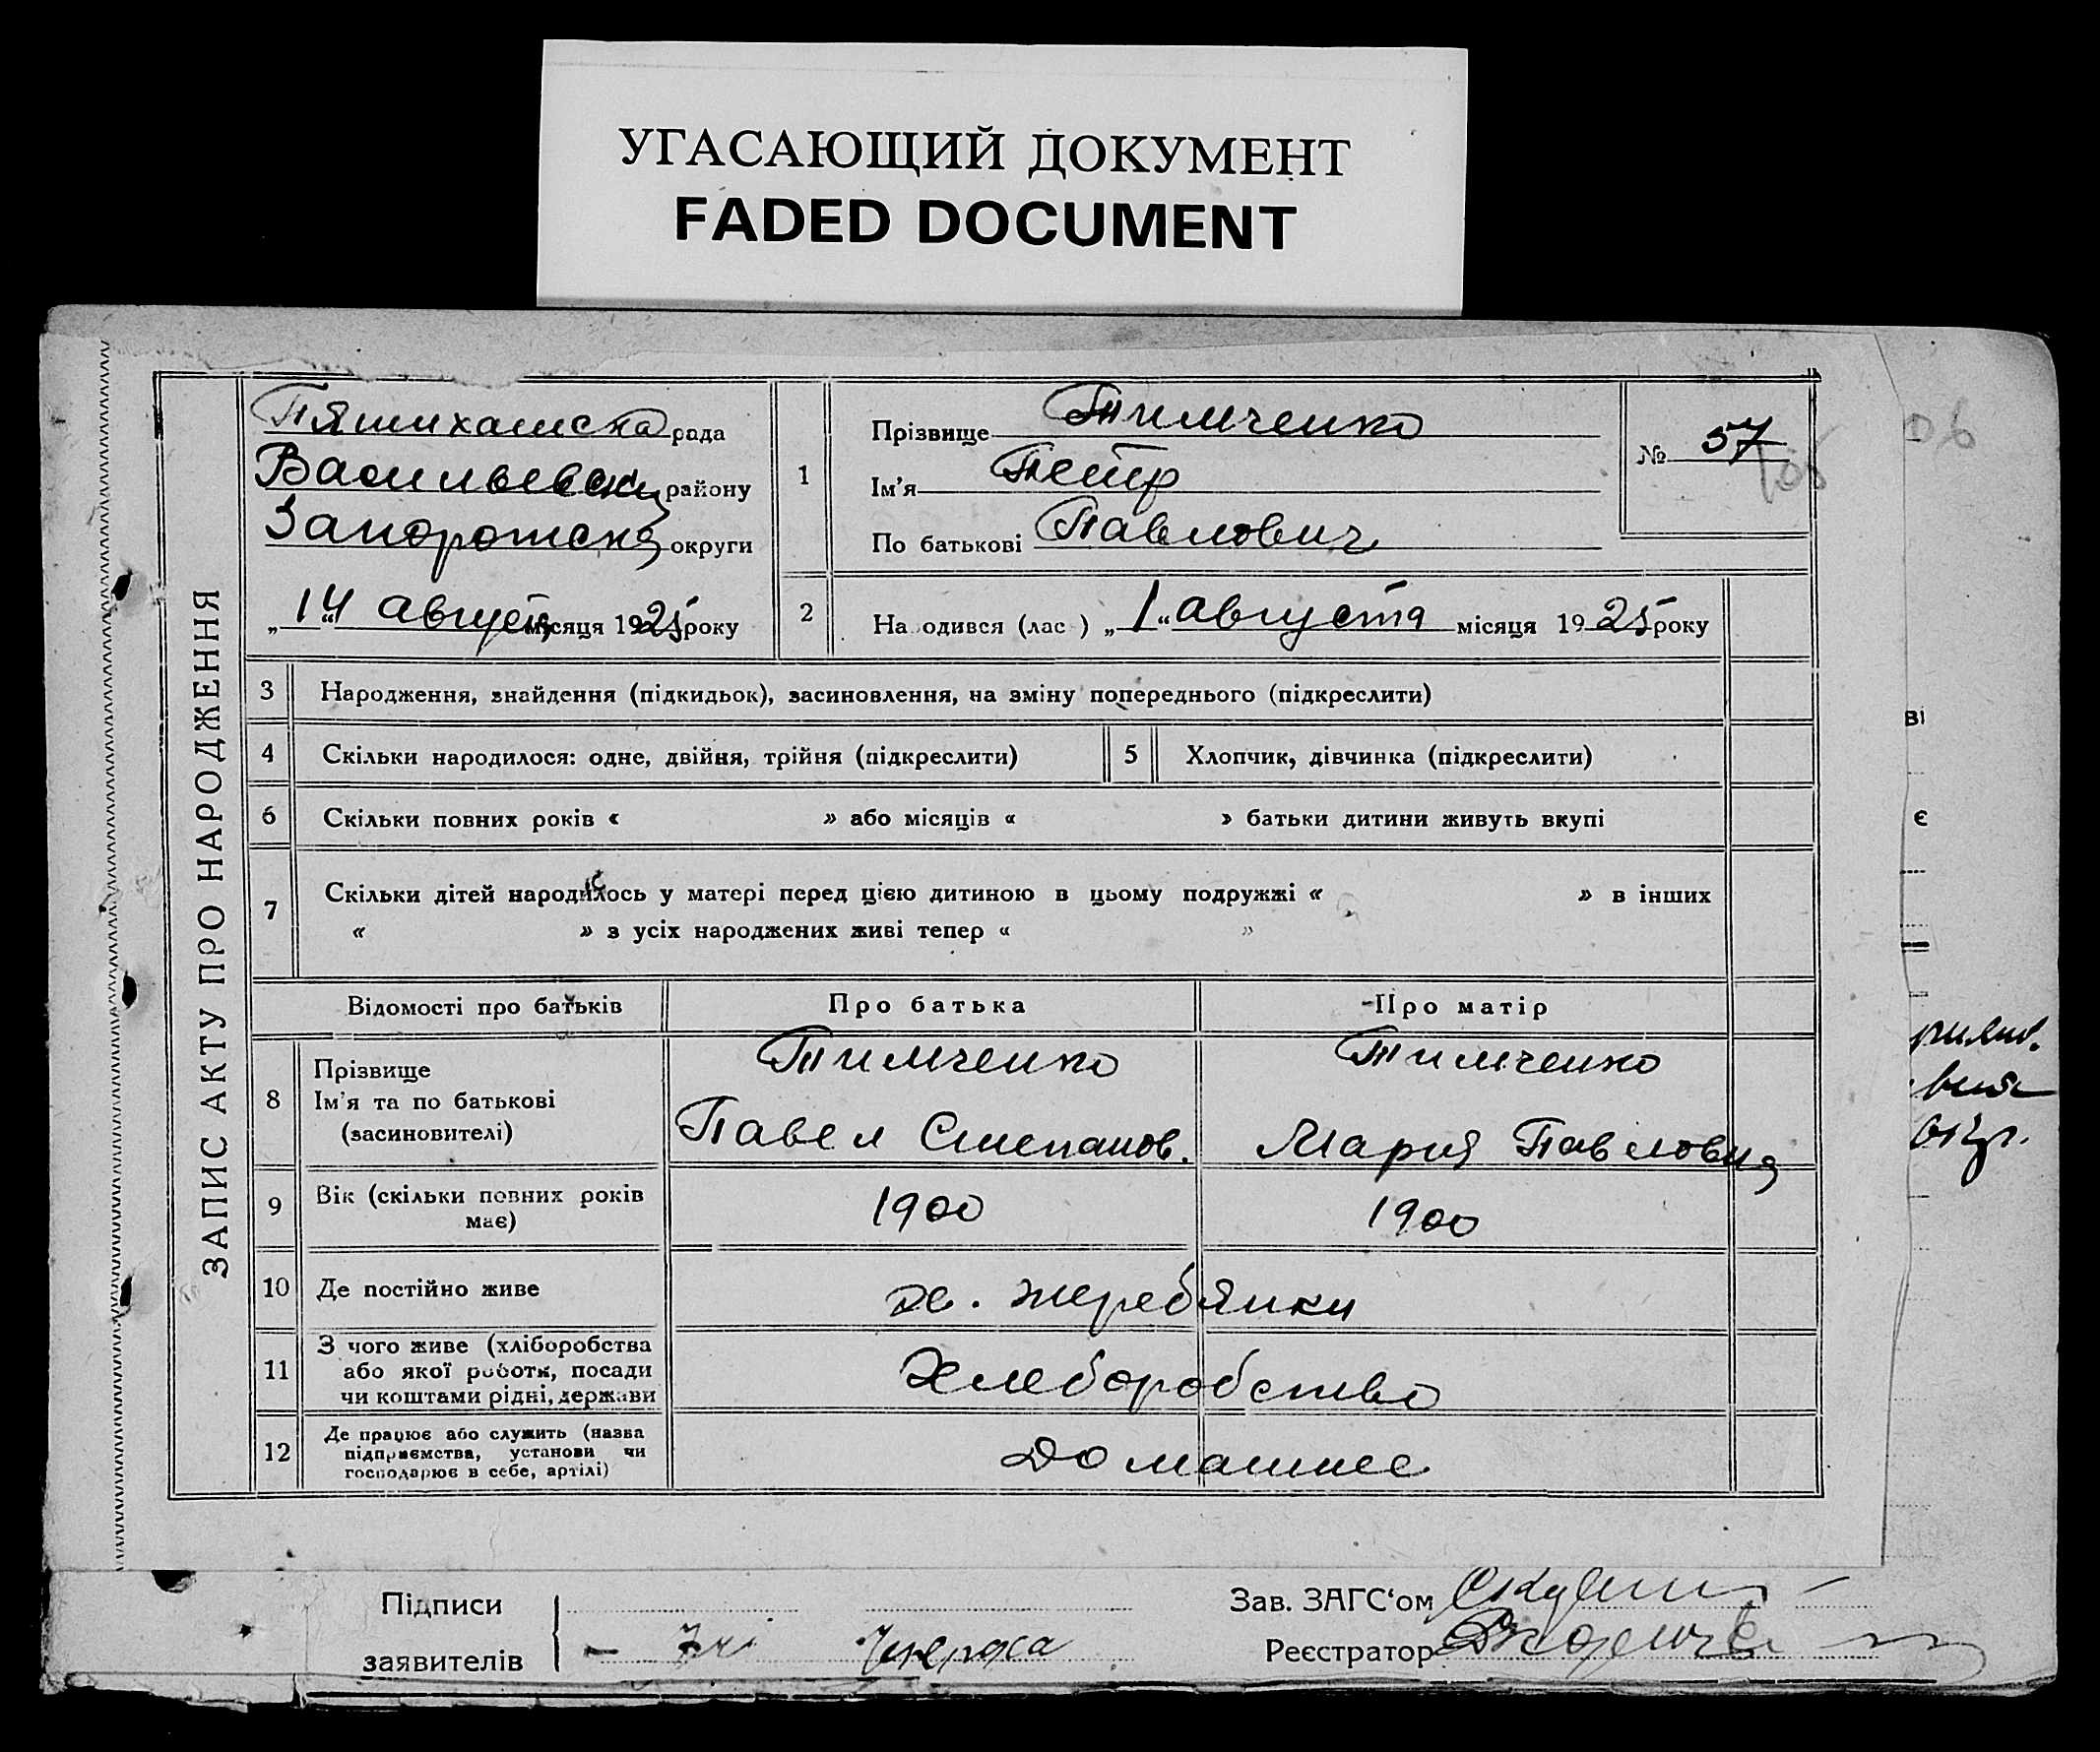 УГАСАЮЩИЙ ДОКУМЕНТ
FADED DOCUMENT
ЗАПИС АКТУ ПРО НАРОДЖЕННЯ
Пятихатска рада
Васильевску району
Запорожска округи
„14“ августа місяця 1925 року
1
Прізвище Тимченко
Ім'я Петр
По батькові Павлович
№ 57
106
06
2
На одився (лас ) „1“ августа місяця 1925 року
3 Народження, знайдення (підкидьок), засиновлення, на зміну попереднього (підкреслити)
4 Скільки народилося: одне, двійня, трійня (підкреслити)
5 Хлопчик, дівчинка (підкреслити)
6 Скільки повних років « » або місяців « » батьки дитини живуть вкупі
7 Скільки дітей народилось у матері перед цією дитиною в цьому подружжі « » в інших
« » з усіх народжених живі тепер « »
Відомості про батьків
Про батька
Про матір
8
Прізвище
Ім'я та по батькові
(засиновителі)
Тимченко
Павел Степанов.
Тимченко
Мария Павловна
9
Вік (скільки повних років
має)
1900
1900
10 Де постійно живе
х. жеребянки
11
З чого живе (хліборобства
або якої роботи, посади
чи коштами рідні, держави
Хлеборобство
12
Де працює або служить (назва
підприємства, установи чи
господарює в себе, артілі)
Домашнее
ві
є
Підписи
заявителів
Зав. ЗАГС'ом
Реєстратор